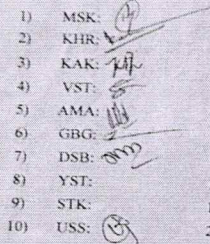 1) MSK:
2) KHR:
3) KAK:
4) VST:
5) AMA:
6) GBG:
7) DSB:
8) YST:
9) STK:
10) USS: